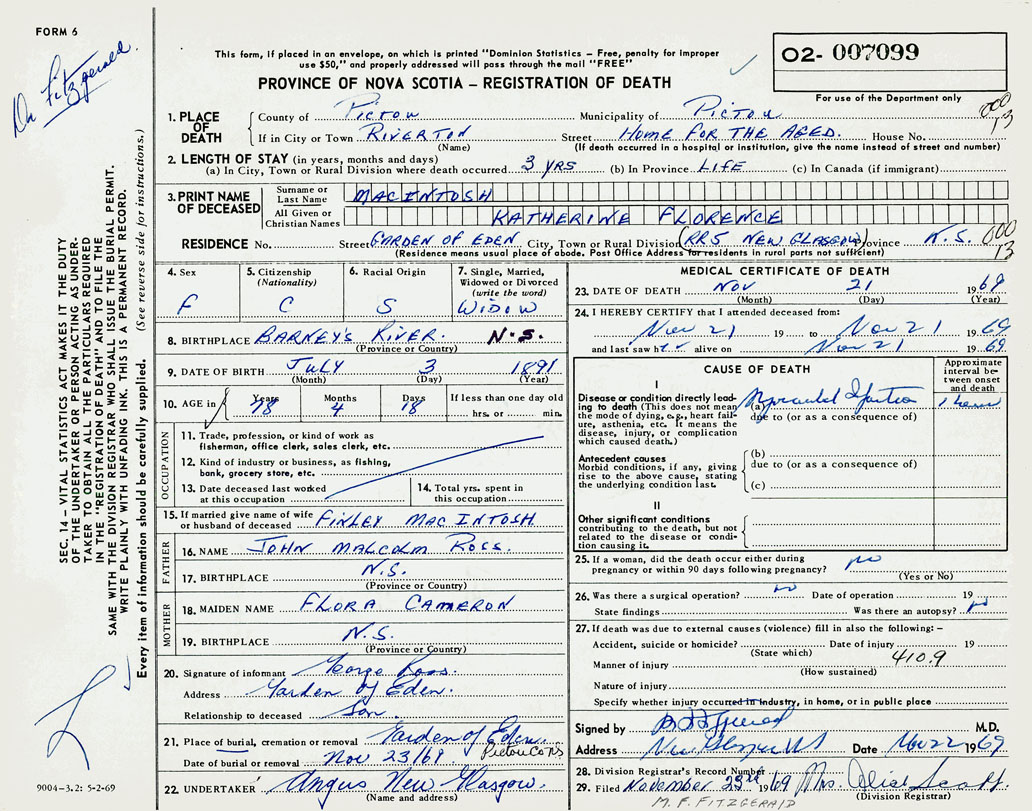 FORM 6
Dr. Fitzgerald
This form, if placed in an envelope, on which is printed "Dominion Statistics – Free, penalty for improper
use $50," and properly addressed will pass through the mail "FREE"
PROVINCE OF NOVA SCOTIA – REGISTRATION OF DEATH
02- 007099
For use of the Department only
SEC. 14 – VITAL STATISTICS ACT MAKES IT THE DUTY
OF THE UNDERTAKER OR PERSON ACTING AS UNDER-
TAKER TO OBTAIN ALL THE PARTICULARS REQUIRED
IN THE "REGISTRATION OF DEATH" AND TO FILE THE
SAME WITH THE DIVISION REGISTRAR WHO SHALL ISSUE THE BURIAL PERMIT.
WRITE PLAINLY WITH UNFADING INK. THIS IS A PERMANENT RECORD.
Every item of information should be carefully supplied. (See reverse side for instructions.)
1. PLACE OF DEATH
County of Pictou Municipality of Pictou 000 13
If in City or Town RIVERTON Street HOME FOR THE AGED. House No.
(Name) (If death occurred in a hospital or institution, give the name instead of street and number)
2. LENGTH OF STAY (in years, months and days)
(a) In City, Town or Rural Division where death occurred 3 YRS (b) In Province LIFE (c) In Canada (if immigrant)
3. PRINT NAME OF DECEASED
Surname or Last Name MACINTOSH
All Given or Christian Names KATHERINE FLORENCE
RESIDENCE No. Street GARDEN OF EDEN City, Town or Rural Division (RR5 NEW GLASGOW) Province N.S. 000 13
(Residence means usual place of abode. Post Office Address for residents in rural parts not sufficient)
4. Sex F
5. Citizenship (Nationality) C
6. Racial Origin S
7. Single, Married, Widowed or Divorced (write the word) WIDOW
8. BIRTHPLACE BARNEY'S RIVER. N.S.
(Province or Country)
9. DATE OF BIRTH JULY 3 1891
(Month) (Day) (Year)
10. AGE in Years 78 Months 4 Days 18 If less than one day old hrs. or min.
OCCUPATION
11. Trade, profession, or kind of work as
fisherman, office clerk, sales clerk, etc.
12. Kind of industry or business, as fishing,
bank, grocery store, etc.
13. Date deceased last worked
at this occupation
14. Total yrs. spent in
this occupation
15. If married give name of wife
or husband of deceased FINLEY MAC INTOSH
FATHER
16. NAME JOHN MALCOLM ROSS.
17. BIRTHPLACE N.S.
(Province or Country)
MOTHER
18. MAIDEN NAME FLORA CAMERON
19. BIRTHPLACE N.S.
(Province or Country)
20. Signature of informant George Ross.
Address Garden of Eden.
Relationship to deceased Son.
21. Place of burial, cremation or removal Garden of Eden. Pictou Co NS
Date of burial or removal Nov 23/69
22. UNDERTAKER Angus New Glasgow.
(Name and address)
9004–3.2: 5-2-69
MEDICAL CERTIFICATE OF DEATH
23. DATE OF DEATH Nov 21 1969
(Month) (Day) (Year)
24. I HEREBY CERTIFY that I attended deceased from:
Nov 21 19 to Nov 21 1969
and last saw her alive on Nov 21 1969
CAUSE OF DEATH
Approximate interval between onset and death
I
Disease or condition directly lead-
ing to death (This does not mean
the mode of dying, e.g., heart fail-
ure, asthenia, etc. It means the
disease, injury, or complication
which caused death.)
(a) Myocardial Infarction 1 hour
due to (or as a consequence of)
Antecedent causes
Morbid conditions, if any, giving
rise to the above cause, stating
the underlying condition last.
(b)
due to (or as a consequence of)
(c)
II
Other significant conditions
contributing to the death, but not
related to the disease or condi-
tion causing it.
25. If a woman, did the death occur either during
pregnancy or within 90 days following pregnancy? no
(Yes or No)
26. Was there a surgical operation? no Date of operation 19
State findings Was there an autopsy? no
27. If death was due to external causes (violence) fill in also the following: –
Accident, suicide or homicide? Date of injury 19
(State which) 410.9
Manner of injury
(How sustained)
Nature of injury
Specify whether injury occurred in industry, in home, or in public place
Signed by M.D.
Address New Glasgow NS Date Nov 22 1969
28. Division Registrar's Record Number
29. Filed November 23rd 1969 Mrs.
(Division Registrar)
M. F. FITZGERALD